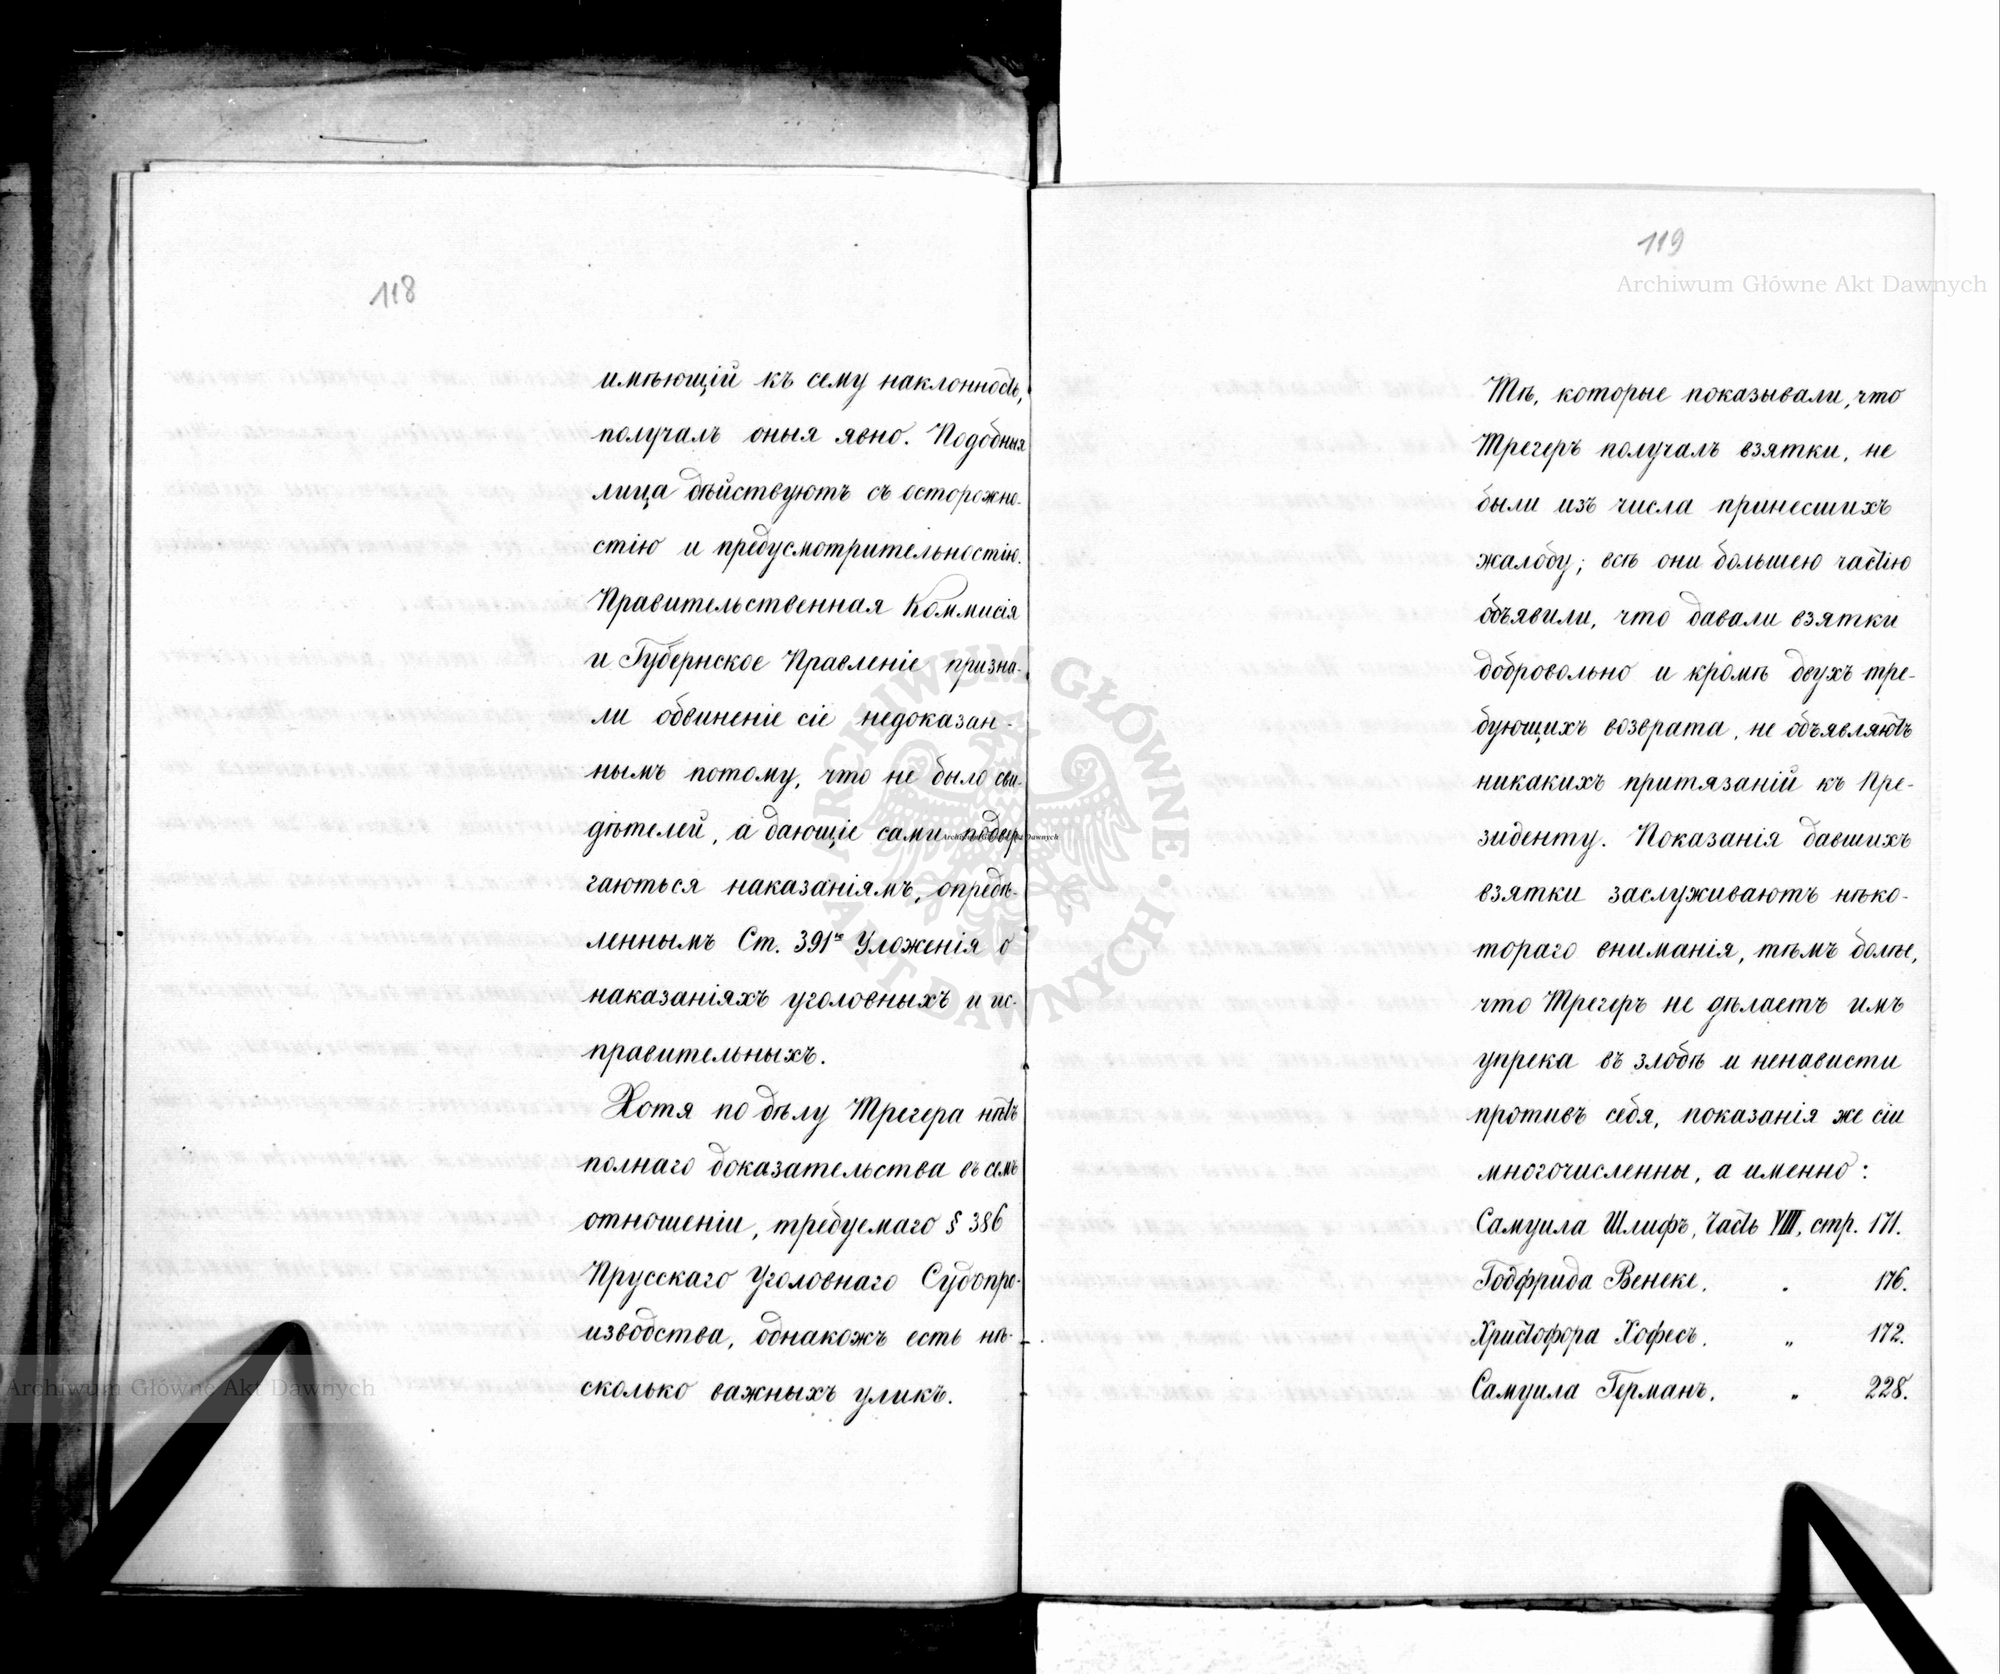 118
имѣющій къ сему наклонность,
получалъ оныя явно. Подобныя
лица дѣйствуютъ съ осторожно-
стію и предусмотрительностію.
Правительственная Коммисія
и Губернское Правленіе призна-
ли обвиненіе сіе недоказан-
нымъ потому, что не было сви-
дѣтелей, а дающіе сами подвер
гаються наказаніямъ, опредѣ-
леннымъ Ст. 391ю Уложенія о
наказаніяхъ уголовныхъ и ис-
правительныхъ.
Хотя по дѣлу Трегера нѣтъ
полнаго доказательства въ семъ
отношеніи, требуемаго § 386
Прусскаго Уголовнаго Судопро-
изводства, однакожъ есть нѣ-
сколько важныхъ уликъ.
119
Archiwum Główne Akt Dawnych
Тѣ, которые показывали, что
Трегеръ получалъ взятки, не
были изъ числа принесшихъ
жалобу; всѣ они большею частію
объявили, что давали взятки
добровольно и кромѣ двухъ тре-
бующихъ возврата, не объявляютъ
никакихъ притязаній къ Пре-
зиденту. Показанія давшихъ
взятки заслуживаютъ нѣко-
тораго вниманія, тѣмъ болѣе,
что Трегеръ не дѣлаетъ имъ
упрека въ злобѣ и ненависти
противъ себя, показанія же сіи
многочисленны, а именно:
Самуила Шлифъ, Часть VIII, стр. 171.
Годфрида Венеке. „ 176.
Христофора Хофесъ. „ 172.
Самуила Германъ. „ 228.
ARCHIWUM GŁÓWNE AKT DAWNYCH
Archiwum Główne Akt Dawnych
Archiwum Główne Akt Dawnych